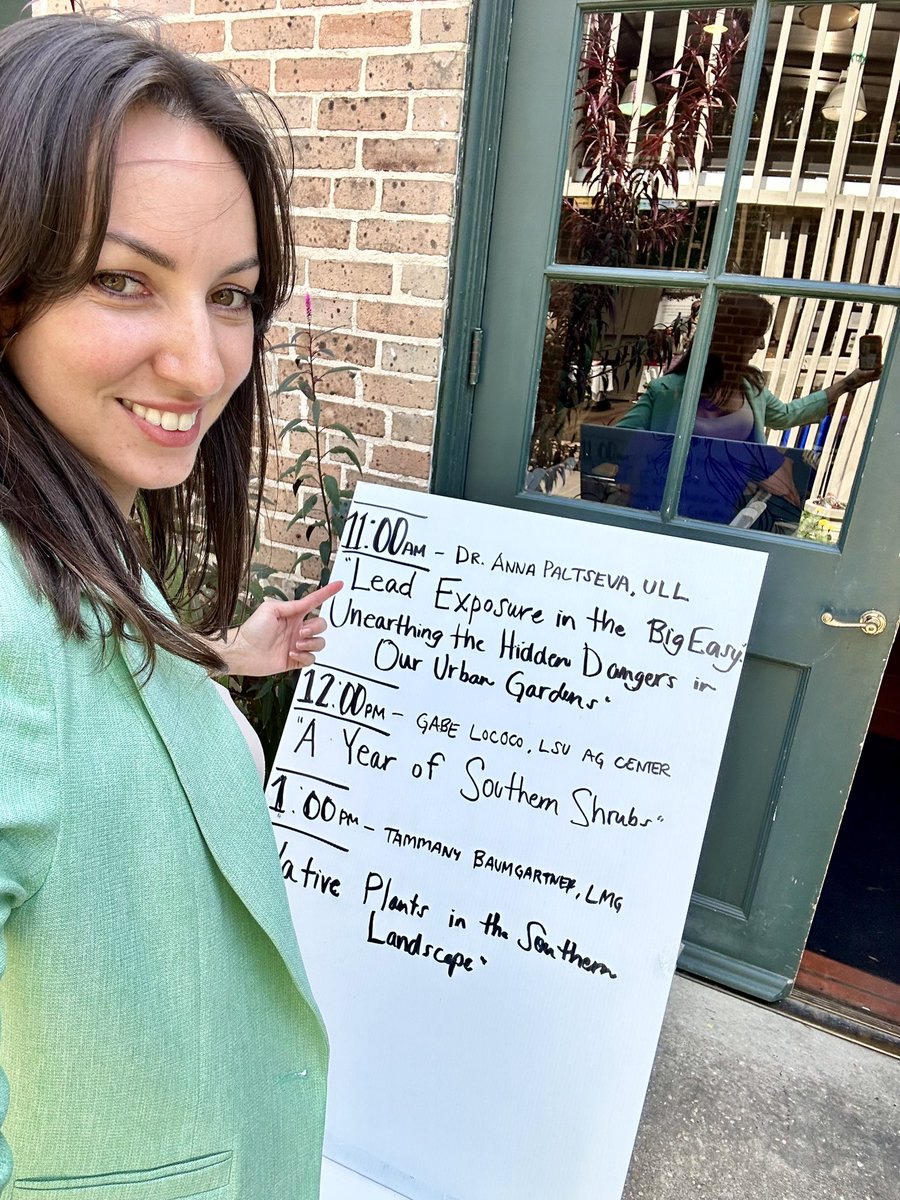 11:00AM – DR. ANNA PALTSEVA, ULL
"Lead Exposure in the Big Easy:
Unearthing the Hidden Dangers in
Our Urban Gardens"
12:00PM – GABE LOCOCO, LSU AG CENTER
"A Year of Southern Shrubs"
1:00PM – TAMMANY BAUMGARTNER, LMG
Plants in the Southern
Landscape"